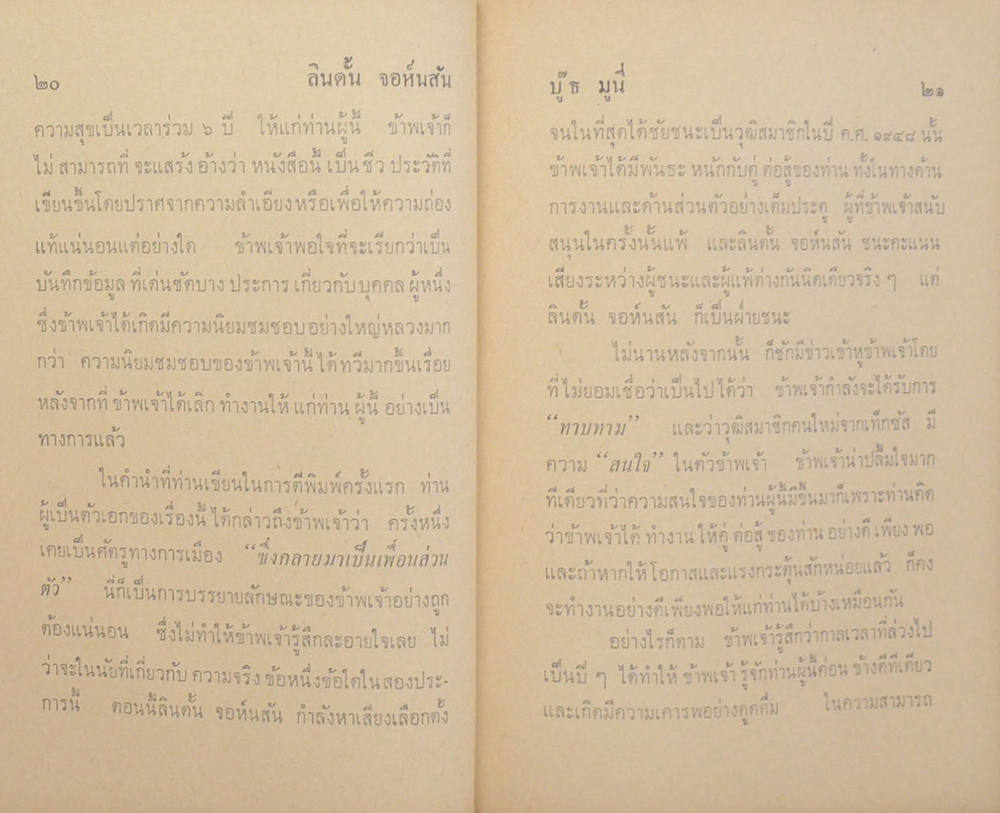 ๒๐ ลินดั้น จอห์นสัน
ความสุขเป็นเวลาร่วม ๖ ปี ให้แก่ท่านผู้นี้ ข้าพเจ้าก็
ไม่ สามารถที่ จะแสร้ง อ้างว่า หนังสือนี้ เป็น ชีว ประวัติที่
เขียนขึ้นโดยปราศจากความลำเอียง หรือเพื่อให้ความถ่อง
แท้แน่นอนแต่อย่างใด ข้าพเจ้าพอใจที่จะเรียกว่าเป็น
บันทึกข้อมูล ที่เด่นชัดบาง ประการ เกี่ยวกับ บุคคล ผู้หนึ่ง
ซึ่งข้าพเจ้าได้เกิดมีความนิยมชมชอบ อย่างใหญ่หลวงมาก
กว่า ความนิยมชมชอบของข้าพเจ้านี้ ได้ ทวีมากขึ้นเรื่อย
หลังจากที่ ข้าพเจ้าได้เลิก ทำงานให้ แก่ท่าน ผู้นี้ อย่างเป็น
ทางการแล้ว
ในคำนำที่ท่านเขียนในการตีพิมพ์ครั้งแรก ท่าน
ผู้เป็นตัวเอกของเรื่องนี้ ได้กล่าวถึงข้าพเจ้าว่า ครั้งหนึ่ง
เคยเป็นศัตรูทางการเมือง “ซึ่งกลายมาเป็นเพื่อนส่วน
ตัว” นี่ก็เป็นการบรรยายลักษณะของข้าพเจ้าอย่างถูก
ต้องแน่นอน ซึ่งไม่ทำให้ข้าพเจ้ารู้สึกละอายใจเลย ไม่
ว่าจะในนัยที่เกี่ยวกับ ความจริง ข้อหนึ่งข้อใดใน สองประ-
การนี้ ตอนนี้ลินดั้น จอห์นสัน กำลังหาเสียงเลือกตั้ง
บู๊ธ มูนี่ ๒๑
จนในที่สุดได้ชัยชนะเป็นวุฒิสมาชิกในปี ค.ศ. ๑๙๔๘ นั้น
ข้าพเจ้าได้มีพันธะ หนักกับคู่ ต่อสู้ของท่าน ทั้งในทางด้าน
การงานและด้านส่วนตัวอย่างเต็มประตู ผู้ที่ข้าพเจ้าสนับ
สนุนในครั้งนั้นแพ้ และลินดั้น จอห์นสัน ชนะคะแนน
เสียงระหว่างผู้ชนะและผู้แพ้ต่างกันนิดเดียวจริง ๆ แต่
ลินดั้น จอห์นสัน ก็เป็นฝ่ายชนะ
ไม่นานหลังจากนั้น ก็ชักมีข่าวเข้าหูข้าพเจ้าโดย
ที่ ไม่ยอมเชื่อว่าเป็นไปได้ว่า ข้าพเจ้ากำลังจะได้รับการ
“ทาบทาม” และว่าวุฒิสมาชิกคนใหม่จากเท็กซัส มี
ความ “สนใจ” ในตัวข้าพเจ้า ข้าพเจ้าน่าปลื้มใจมาก
ทีเดียวที่ว่าความสนใจของท่านผู้นี้มีขึ้นมาก็เพราะท่านคิด
ว่าข้าพเจ้าได้ ทำงาน ให้คู่ ต่อสู้ ของท่าน อย่างดี เพียง พอ
และถ้าหากให้ โอกาสและแรงกระตุ้นสักหน่อยแล้ว ก็คง
จะทำงานอย่างดีเพียงพอให้แก่ท่านได้บ้างเหมือนกัน
อย่างไรก็ตาม ข้าพเจ้ารู้สึกว่ากาลเวลาที่ล่วงไป
เป็นปี ๆ ได้ทำให้ ข้าพเจ้า รู้จักท่านผู้นี้ค่อน ข้างดีทีเดียว
และเกิดมีความเคารพอย่างดูดดื่ม ในความสามารถ